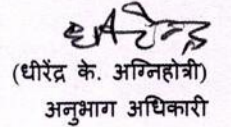 (धीरेंद्र के. अग्निहोत्री)
अनुभाग अधिकारी